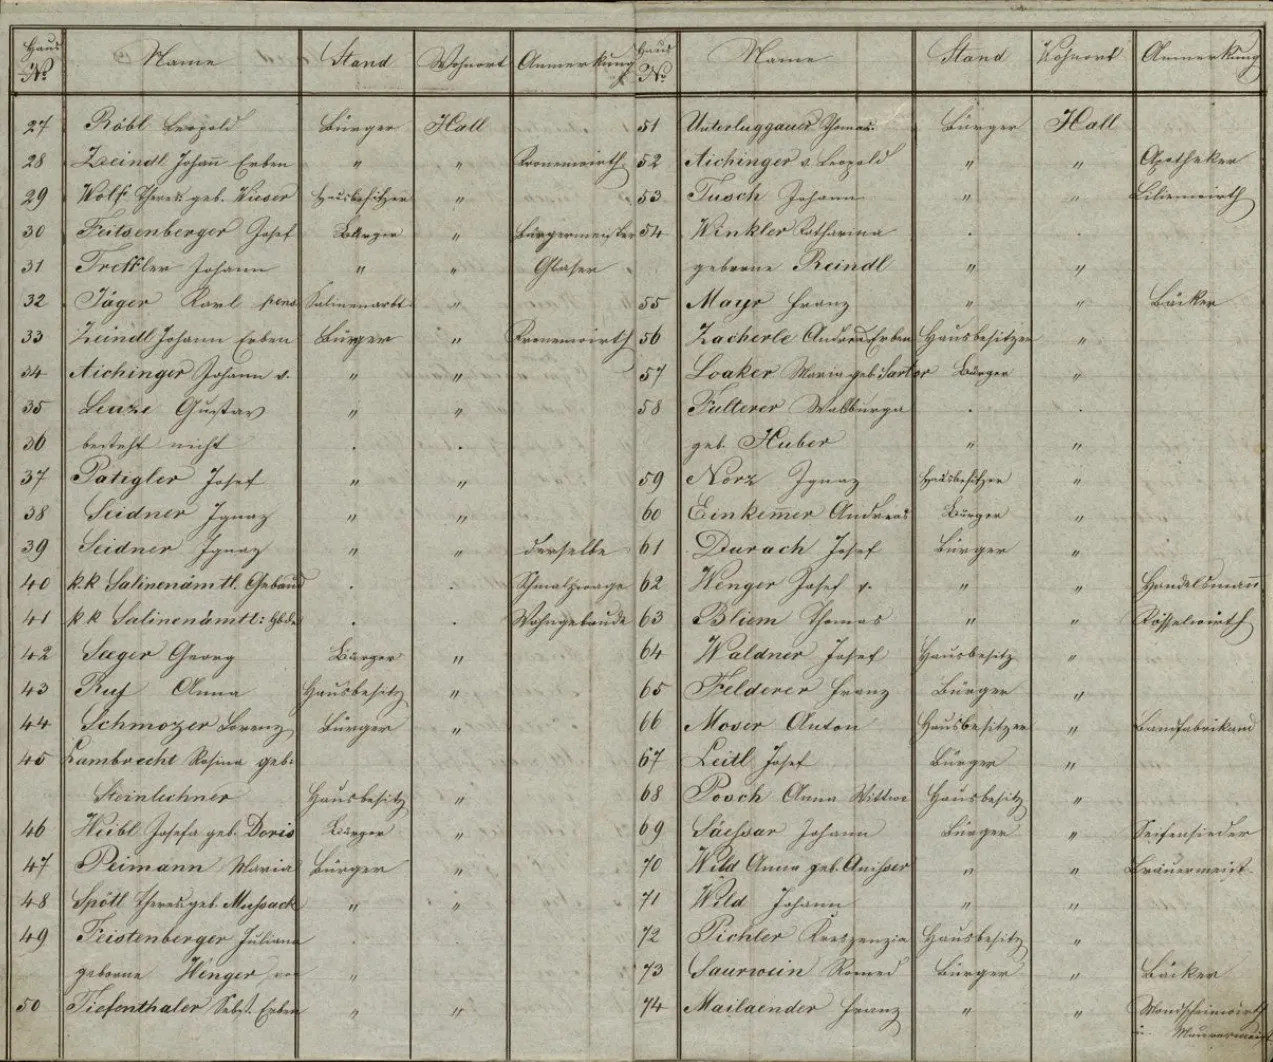 Haus No Name Stand Wohnort Anmerkung
27 Röbl Leopold Bürger Hall
28 Zeindl Johann Erben " " Kronenwirth
29 Wolf Theres geb. Wieser Hausbesitzer "
30 Feistenberger Josef Bürger " Bürgermeister
31 Johann " " Glaser
32 Jäger Karl pens. Salinenarbt. "
33 Zeindl Johann Erben Bürger " Kronenwirth
34 Aichinger Johann v. " "
35 Gustav " "
36 besteht nicht . .
37 Patigler Josef " "
38 Seidner Ignaz " "
39 Seidner Ignaz " " derselbe
40 k.k Salinenämtl. Gebäud .
41 k.k Salinenämtl: . . Wohngebäude
42 Saeger Georg Bürger "
43 Ruf Anna Hausbesitz "
44 Schmozer Lorenz Bürger "
45 Lambrecht Rosina geb.
Steinlechner Hausbesitz "
46 Heibl Josefa geb. Doris Bürger "
47 Peimann Maria Bürger "
48 Spötl Theres geb. Mussack " "
49 Feistenberger Juliana
geborne Wenger "
50 Tiefenthaler Sebst. Erben " "
Haus No Name Stand Wohnort Anmerkung
51 Unterluggauer Thomas. Bürger Hall
52 Aichinger v. Leopold " " Apotheker
53 Tusch Johann " " Lilienwirth
54 Winkler Katharina . .
geborne Reindl " "
55 Mayr Franz " " Bäcker
56 Zacherle Andrea Erben Hausbesitzer "
57 Loaker Maria geb: Sartor Bürger "
58 Fulterer Walburga . .
geb. Huber " "
59 Norz Ignaz Hausbesitzer "
60 Einkem̄er Andreas Bürger "
61 Durach Josef Bürger "
62 Wenger Josef v. " " Handelsman̄
63 Bliem Thomas " " Rösselwirth
64 Waldner Josef Hausbesitz "
65 Felderer Franz Bürger "
66 Moser Anton Hausbesitzer " Bandfabrikand
67 Leitl Josef Bürger "
68 Posch Anna Wittwe Hausbesitz "
69 Johann Bürger " Seifensieder
70 Wild Anna geb. " " Bräuermeist.
71 Wild Johann " "
72 Pichler Kreszenzia Hausbesitz "
73 Saurwein Romed Bürger " Bäcker
74 Mailaender Franz " " Mondscheinwirth
u. Maurermeist